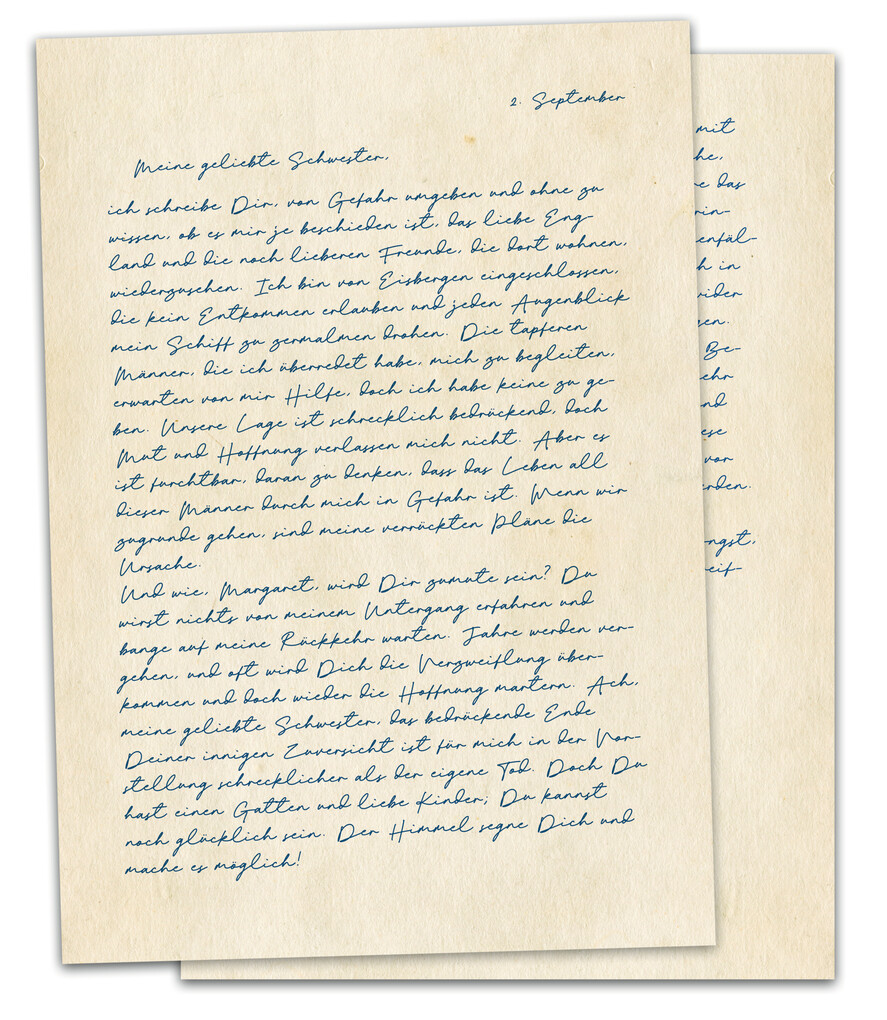 2. September
Meine geliebte Schwester,
ich schreibe Dir, von Gefahr umgeben und ohne zu
wissen, ob es mir je beschieden ist, das liebe Eng-
land und die noch lieberen Freunde, die dort wohnen,
wiederzusehen. Ich bin von Eisbergen eingeschlossen,
die kein Entkommen erlauben und jeden Augenblick
mein Schiff zu zermalmen drohen. Die tapferen
Männer, die ich überredet habe, mich zu begleiten,
erwarten von mir Hilfe, doch ich habe keine zu ge-
ben. Unsere Lage ist schrecklich bedrückend, doch
Mut und Hoffnung verlassen mich nicht. Aber es
ist furchtbar, daran zu denken, dass das Leben all
dieser Männer durch mich in Gefahr ist. Wenn wir
zugrunde gehen, sind meine verrückten Pläne die
Ursache.
Und wie, Margaret, wird Dir zumute sein? Du
wirst nichts von meinem Untergang erfahren und
bange auf meine Rückkehr warten. Jahre werden ver-
gehen, und oft wird Dich die Verzweiflung über-
kommen und doch wieder die Hoffnung martern. Ach,
meine geliebte Schwester, das bedrückende Ende
Deiner innigen Zuversicht ist für mich in der Vor-
stellung schrecklicher als der eigene Tod. Doch Du
hast einen Gatten und liebe Kinder; Du kannst
noch glücklich sein. Der Himmel segne Dich und
mache es möglich!
mit
he,
e das
rin-
enfäl-
h in
wider
gen.
Be-
ehr
nd
ese
vor
rden.
ngst,
eif-